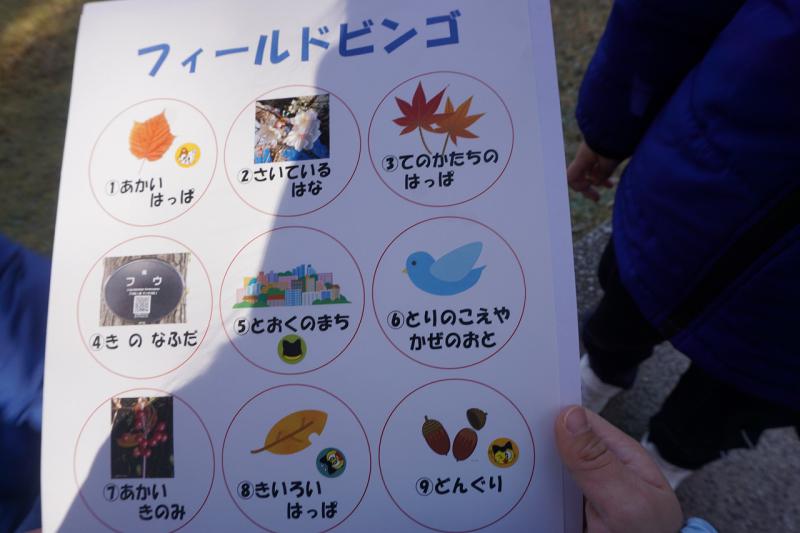 フィールドビンゴ
①あかい
はっぱ
②さいている
はな
③てのかたちの
はっぱ
フウ
④き の なふだ
⑤とおくのまち
⑥とりのこえや
かぜのおと
⑦あかい
きのみ
⑧きいろい
はっぱ
⑨どんぐり